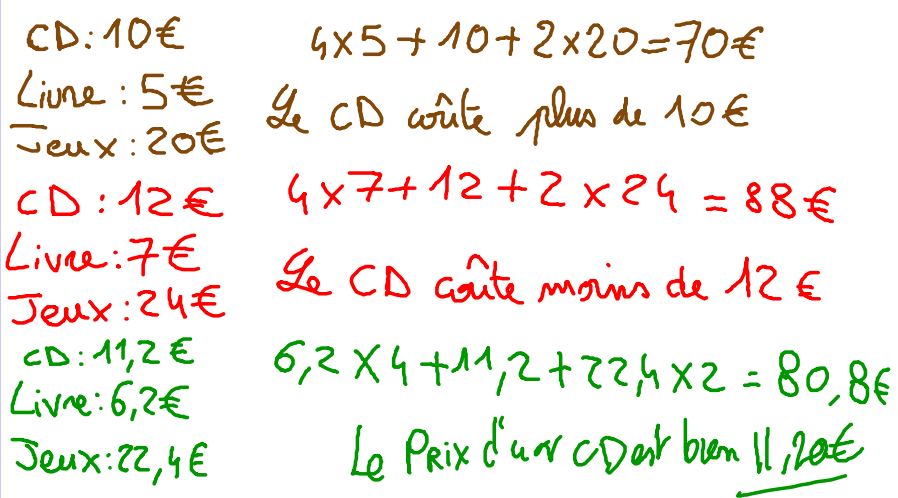 CD : 10 €
4 x 5 + 10 + 2 x 20 = 70 €
Livre : 5 €
Le CD coûte plus de 10 €
Jeux : 20 €
CD : 12 €
4 x 7 + 12 + 2 x 24 = 88 €
Livre : 7 €
Le CD coûte moins de 12 €
Jeux : 24 €
CD : 11,2 €
6,2 X 4 + 11,2 + 22,4 x 2 = 80,8 €
Livre : 6,2 €
Le Prix d'un CD est bien 11,20 €
Jeux : 22,4 €